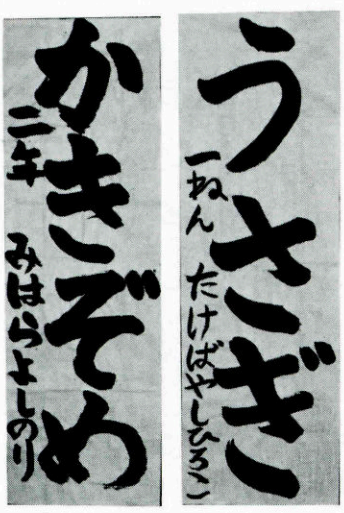 うさぎ
一ねん たけばやしひろこ
かきぞめ
二年 みはらよしのり